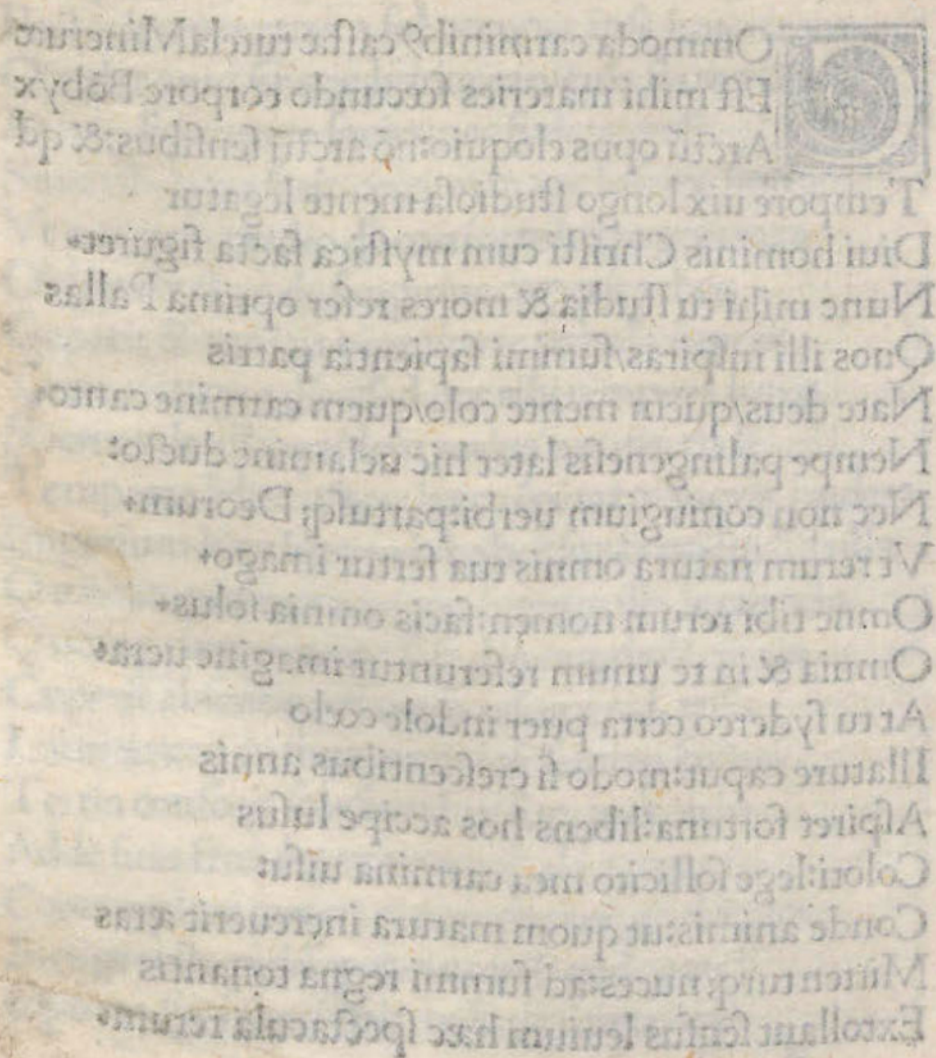 Ommoda carminib⁹ castæ rurela Mineruæ
Est mihi materies fœcundo corpore Bōbyx
Arctū opus eloquio:nō arctū sensibus:& qd
Tempore uix longo studiosa mente legatur
Diui hominis Christi cum mystica facta figuret.
Nunc mihi tu studia & mores refer optima Pallas
Quos illi inspiras/summi sapientia patris
Nate deus/quem mente colo/quem carmine canto.
Nempe palingenesis latet hic uelamine ducto:
Nec non coniugium uerbi:partusq; Deorum.
Vt rerum natura omnis tua fertur imago.
Omne tibi rerum nomen:facis omnia solus.
Omnia & in te unum referuntur imagine uera.
At tu sydereo certa puer indole cœlo
Illature caput:modo si crescentibus annis
Aspiret fortuna:libens hos accipe lusus
Colori:lege sollicito mea carmina uisu:
Conde animis:ut quom matura increuerit ætas
Mittenturq; nuces:ad summi regna tonantis
Extollant sensus leuium hæc spectacula rerum.